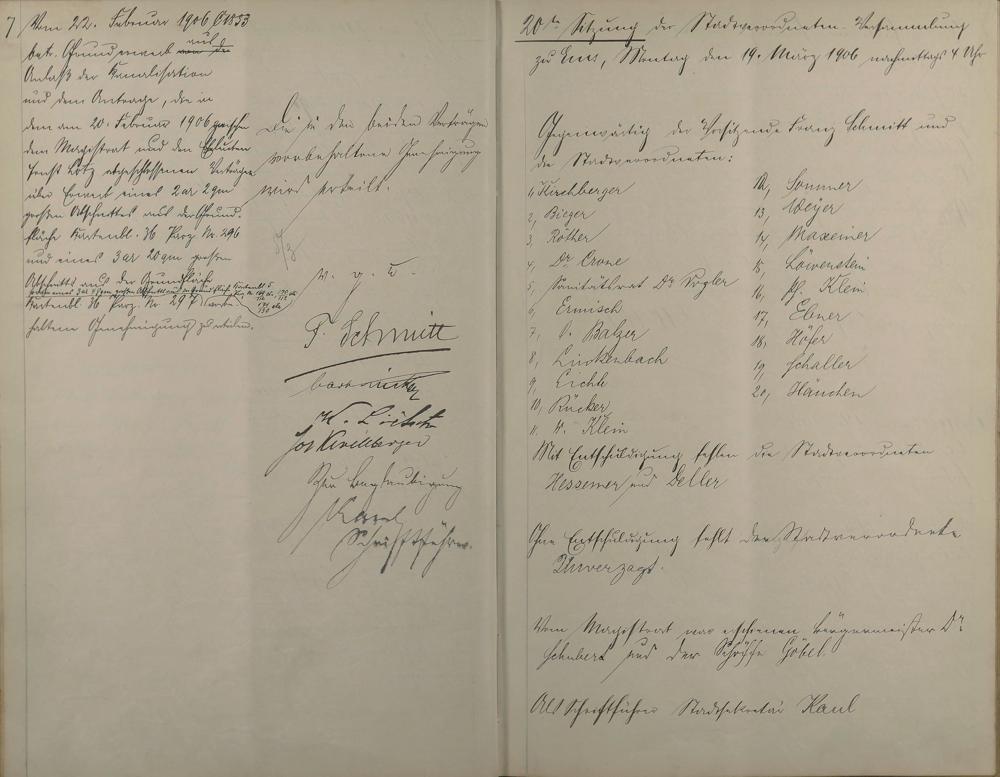 7 Vom 22. Februar 1906 C 1833
betr. Grunderwerb aus
Anlaß der Kanalisation
und dem Antrage, die in
dem am 20. Februar 1906 zwischen
dem Magistrat und den Eheleuten
Ernst Lotz abgeschlossenen Verträge
über Erwerb eines 2 ar 2 qm
großen Abschnittes aus der Grund-
fläche Kartenbl. 36 Parz. Nr. 296
und eines 3 ar 20 qm großen
Abschnitts aus der Grundfläche
Kartenbl. 36 Parz. Nr. 297
haltene Genehmigung zu erteilen.
Die in den beiden Verträgen
vorbehaltene Genehmigung
wird erteilt.
v. g. u.
F. Schmitt
Jos Kirchberger
Zur Beglaubigung
Kaul
Schriftführer.
20te Sitzung der Stadtverordneten-Versammlung
zu Ems, Montag den 19. März 1906 nachmittags 4 Uhr
Gegenwärtig der Vorsitzende Franz Schmitt und
die Stadtverordneten:
1, Kirchberger
2, Bieger
3, Röther
4, Dr. Crone
5, Sanitätsrat Dr Vogler
6, Ermisch
7, O. Balzer
8, Linkenbach
9, Eichh
10, Rücker
11, W. Klein
12, Sommer
13, Weyer
14, Maxeiner
15, Löwenstein
16, Ph. Klein
17, Ebner
18, Höfer
19, Schaller
20, Hänchen
Mit Entschuldigung fehlen die Stadtverordneten
Hessemer und Deller
Ohne Entschuldigung fehlt der Stadtverordnete
Unverzagt.
Vom Magistrat war erschienen Bürgermeister Dr
Schubert und der Schöffe Göbel.
Als Schriftführer Stadtsekretär Kaul